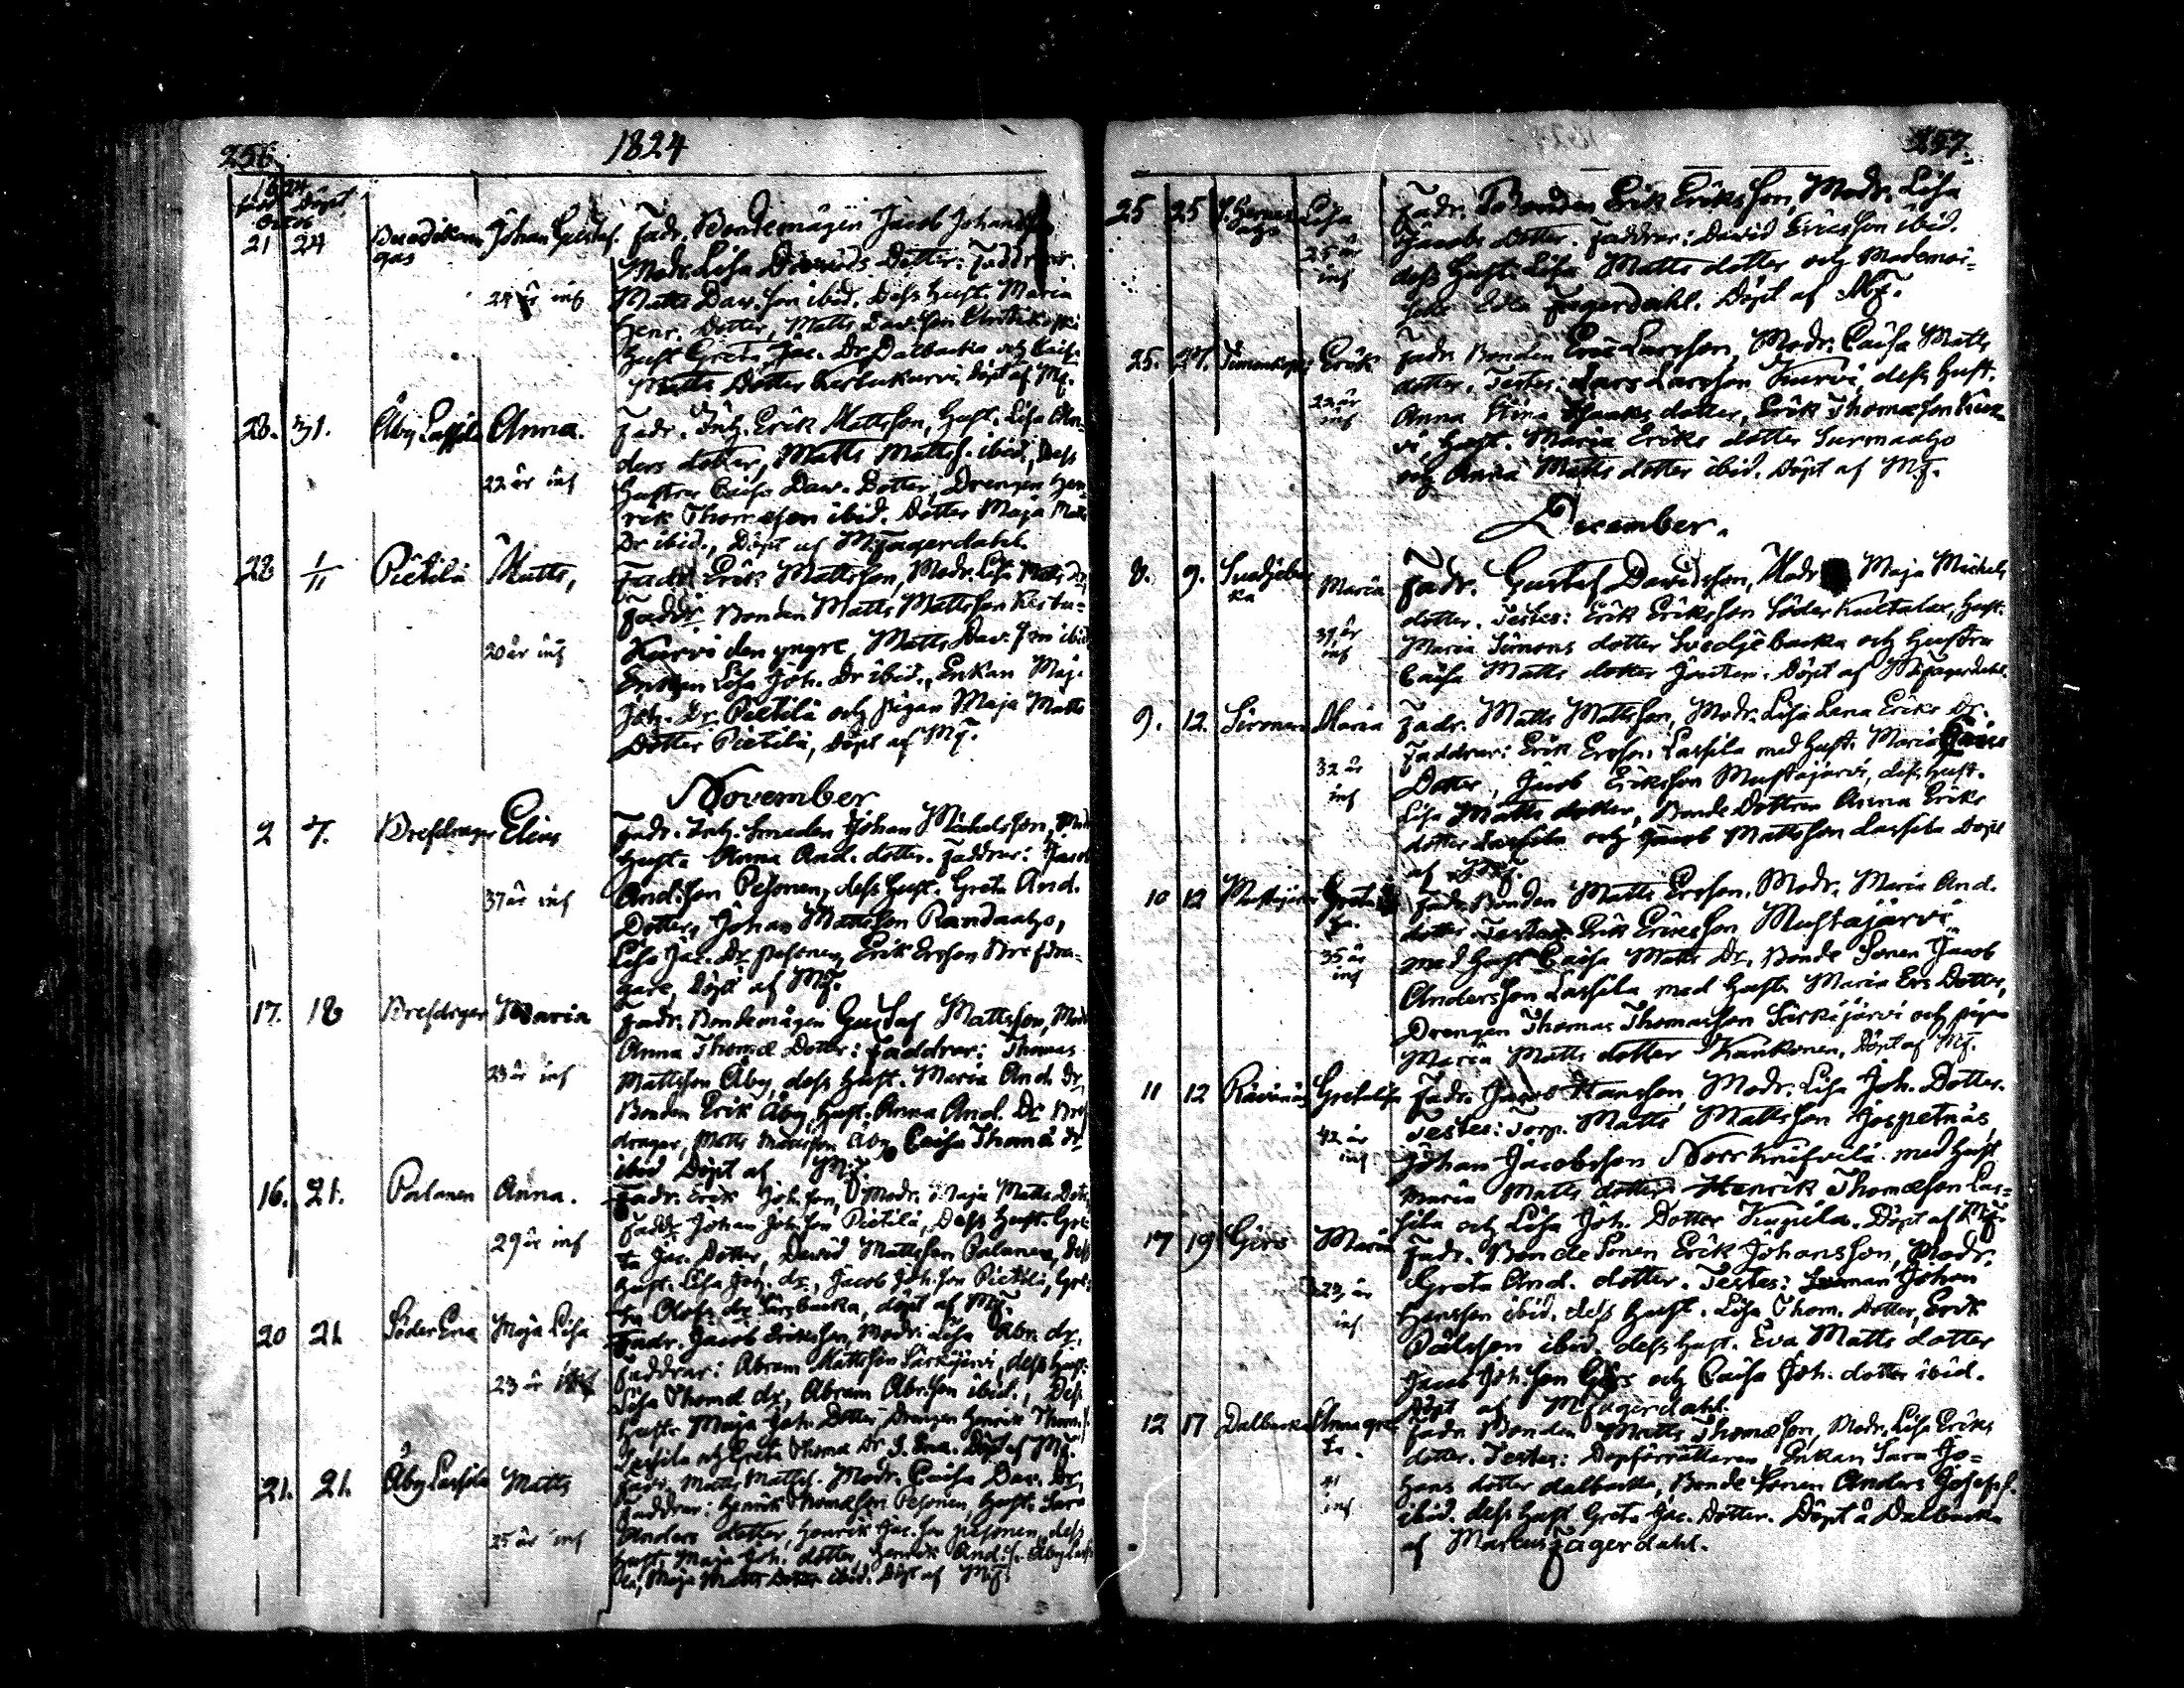 256
1824
1824
född Döpt
Octob
21 24 Johan Gustaf. Fadr. Bondemågen Jacob Johansson
Modr. Lisa Davids Dotter: Faddrar:
24 år inf Matts Dav.son ibid. Dess Hust. Maria
Henr. Dotter, Matts Dav.son
Hust. Greta Jac. Dr Dalbacka, och Caisa
Matts Dotter Kestukurvi Döpt af MF.
28. 31. Åby Lassila Anna. Fadr. Inh. Erik Mattsson, Hust. Lisa An-
ders dotter, Matts Mattss. ibid., Dess
22 år inf Hustru Caisa Dav. Dotter, Drengen Hen-
rik Thomæson ibid. Dotter Maja Matts
Dr ibid., Döpt af MFagerdahl.
28 1/11 Pietilä Matts, Fadr. Erik Mattsson, Modr. Lisa Matts Dr,
Faddr. Bonden Matts Mattsson Kestu-
20 år inf Kurvi den yngre, Matts Dav. son ibid
Enkan Lisa Joh. Dr ibid., Enkan Maj.
Joh. Dr. Pietilä och pigan Maja Matts
Dotter Pietilä, Döpt af MF.
November
2 7. Brefdrager Elias Fadr. Inh. Smeden Johan Michelsson, Modr
Hustr Anna And. dotter. Faddrar: Jacob
37 år inf And.son Pesonen, dess Hust. Greta And.
Dotter, Johan Mattsson Randaaho,
Lisa Jac. Dr Pesonen, Erik Ersson Brefdra-
gare, Döpt af MF.
17. 18 Brefdrager Maria Fadr. Bondemågen Gustaf Mattsson, Modr
Anna Thomæ Dotter: Faddrar: Thomas
23 år inf Mattsson Åby, dess Hust. Maria And. Dr,
Bonden Erik Åby, Hust. Anna And. Dr Bref
drager, Matts Mattsson Åby, Caisa Thomæ Dr
ibid Döpt af MF.
16. 21. Palanen Anna. Fadr. Erik Joh.son, Modr. Maja Matts Dotr,
Faddr. Johan Joh.son Pietilä, Dess Hust. Gre-
29 år inf ta Jac. Dotter, David Mattsson Palanen, Dess
Hust. Lisa Joh. dr., Jacob Joh.son Pietilä, Gre-
ta Olofs dr, döpt af MF.
20 21 Söder Ena Maja Lisa Fadr. Jacob Eriksson, Modr. Lisa Abr. dr.
Faddrar: Abram Mattsson Särkijärvi, dess Hust.
23 år inf Lisa Thomæ dr, Abram Abr.son ibid., Dess
Hust. Maja Joh. Dotter, Drengen Henrik Thom.s.
Lassila och Greta Thomæ Dr S. Ena. Döpt af MF.
21. 21. Åby Lassila Matts Fadr. Matts Mattss. Modr. Caisa Dav. Dr,
Faddrar: Henrik Thomæson Pesonen, Hust. Sara
35 år inf Anders dotter, Henrik Jac.son Pesonen, dess
Hust. Maja Joh. dotter, Henrik And.s. Åby Lassi-
la, Maja Matts Dotter ibid. Döpt af MF.
257.
25 25 Lisa Fadr. Bonden Erik Eriksson, Modr. Lisa
Jacobs Dotter. Faddrar: David Ericsson ibid.
25 år inf dess Hust. Lisa Matts dotter och Mademoi-
selle Edla Fagerdahl. Döpt af MF.
25. 27. Timonkoski Erik Fadr. Bonden Eric Larsson, Modr: Caisa Matts
dotter. Testes: Lars Larsson Kurvi, dess Hust.
22 år inf Anna Stina Isaaks dotter, Erik Thomæson Kur-
vi, Hust. Maria Eriks dotter Surmaaho
och Anna Matts dotter ibid. Döpt af MF.
December.
8. 9. Svedjebac
ka Maria Fadr. Gustaf Davidsson, Modr Maja Michels
dotter. Testes: Erik Eriksson Söder Kultalax, Hust.
39 år inf Maria Simons dotter Svedjebacka och Hustru
Caisa Matts dotter. Döpt af MFagerdahl.
9. 12. Sironen Maria Fadr. Matts Mattsson, Modr. Lisa Lena Eriks Dr.
Faddrar: Erik Ersson Lassila med Hust. Maria
32 år inf Dotter, Jacob Eriksson Mustajärvi, dess Hust.
Lisa Matts dotter, Bonde Dottren Anna Eriks
dotter Lassila och Jacob Mattsson Lassila Döpt
af MF.
10 12 Mustajärvi Greta Fadr. Bonden Matts Ersson. Modr. Maria And.
dotter Testes: Erik Ericsson Mustajärvi
35 år inf med Hust Caisa Matts Dr. Bonde Sonen Jacob
Andersson Lassila med Hustr. Maria Ers Dotter,
Drengen Thomas Thomasson Särkijärvi och pigan
Maria Matts dotter Kankonen, Döpt af MF.
11 12 Rävinäs Greta Lisa Fadr. Jacob Hansson, Modr. Lisa Joh. Dotter.
Testes: Torp. Matts Mattsson Hospetnäs,
42 år inf Johan Jacobsson Norr Knifvilä med Hust
Maria Matts dotter Henrik Thomæson Las-
sila och Lisa Joh. Dotter Kupila. Döpt af MF.
17 19 Görs Maria Fadr. Bonde Sonen Erik Johansson, Modr.
Greta And. dotter. Testes: Johan
23 år inf Hansson ibid. dess Hust. Lisa Thom. Dotter, Erik
Pålsson ibid. dess Hust. Eva Matts dotter
Jacob Joh.son Görs och Caisa Joh. dotter ibid.
Döpt af MFagerdahl.
12 17 Dalbacka Anna Gre
ta. Fadr. Bonden Matts Thomæson, Modr. Lisa Eriks
dotter. Testes: Dopförrättaren Enkan Sara Jo-
41 inf hans dotter dalbacka, Bonde Sonen Anders Josephs.
ibid. dess Hust Greta Jac. Dotter. Döpt å Dalbacka
af Marcus Fagerdahl.